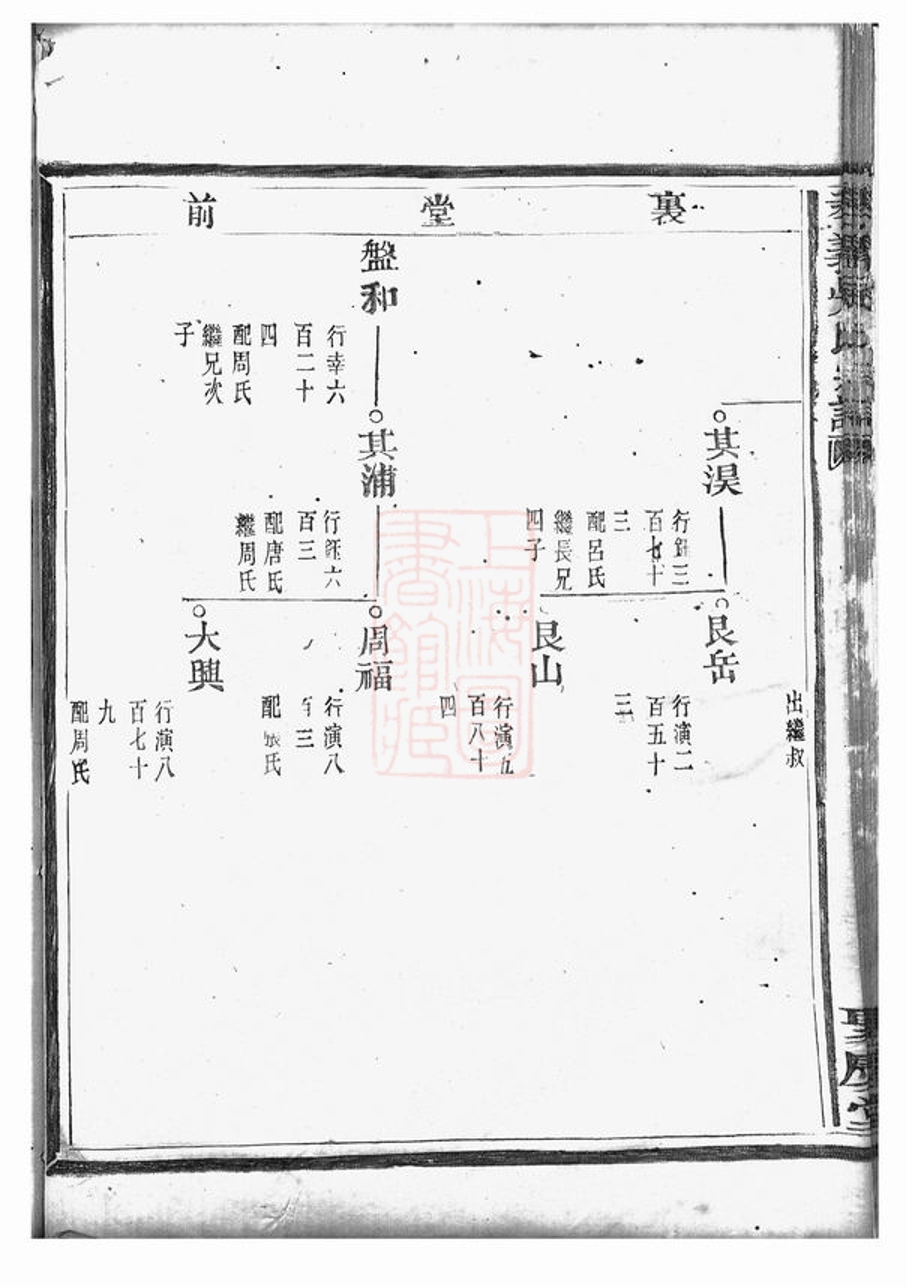 裏堂前
出繼叔
其淏
行鈺三
百七十
三
配呂氏
繼長兄
四子
艮岳
行演二
百五十
三
艮山
行演五
百八十
四
盤和
行幸六
百二十
四
配周氏
繼兄次
子
其浦
行鈺六
百三
配唐氏
繼周氏
周福
行演八
百三
配 氏
大興
行演八
百七十
九
配周氏
上海圖書館藏